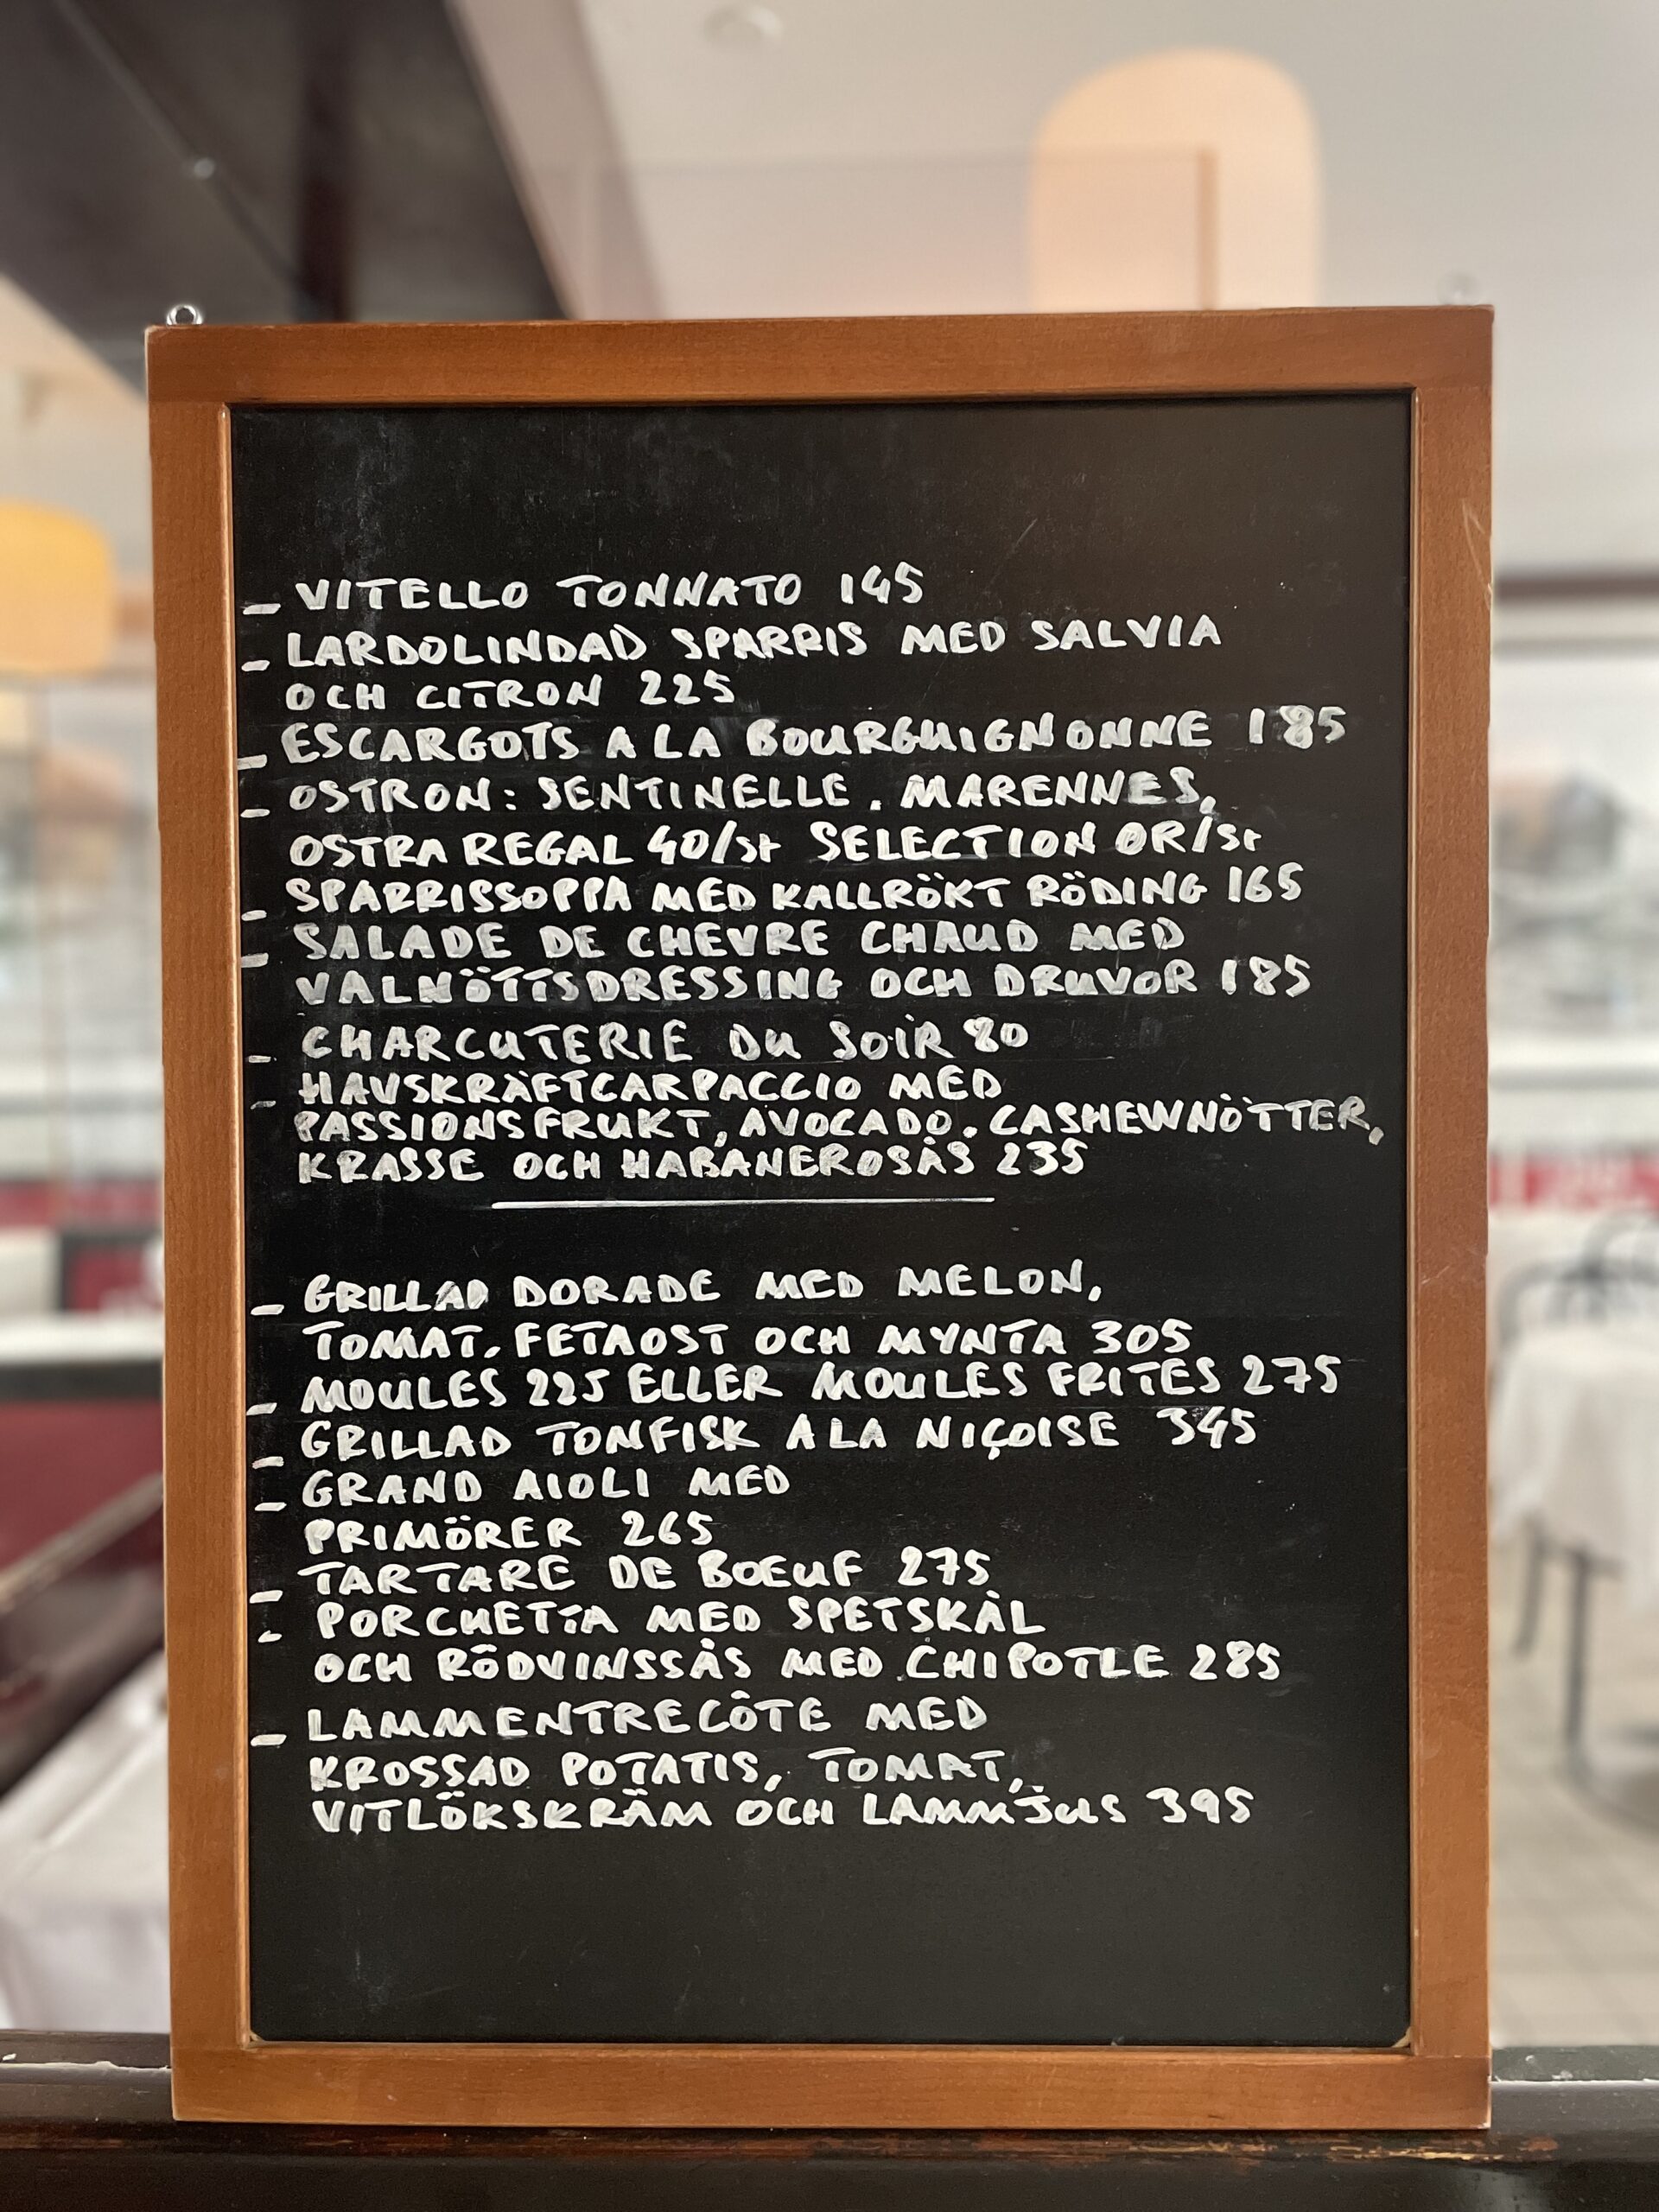 - VITELLO TONNATO 145
- LARDOLINDAD SPARRIS MED SALVIA
OCH CITRON 225
- ESCARGOTS A LA BOURGUIGNONNE 185
- OSTRON: SENTINELLE. MARENNES,
OSTRA REGAL 40/st SELECTION OR/st
- SPARRISSOPPA MED KALLRÖKT RÖDING 165
- SALADE DE CHEVRE CHAUD MED
VALNÖTTSDRESSING OCH DRUVOR 185
- CHARCUTERIE DU SOIR 80
- HAVSKRÄFTCARPACCIO MED
PASSIONSFRUKT, AVOCADO. CASHEWNÖTTER,
KRASSE OCH HABANEROSÅS 235
- GRILLAD DORADE MED MELON,
TOMAT. FETAOST OCH MYNTA 305
- MOULES 225 ELLER MOULES FRITES 275
- GRILLAD TONFISK A LA NIÇOISE 345
- GRAND AIOLI MED
PRIMÖRER 265
- TARTARE DE BOEUF 275
- PORCHETTA MED SPETSKÅL
OCH RÖDVINSSÅS MED CHIPOTLE 285
- LAMMENTRECÔTE MED
KROSSAD POTATIS, TOMAT,
VITLÖKSKRÄM OCH LAMMJUS 395